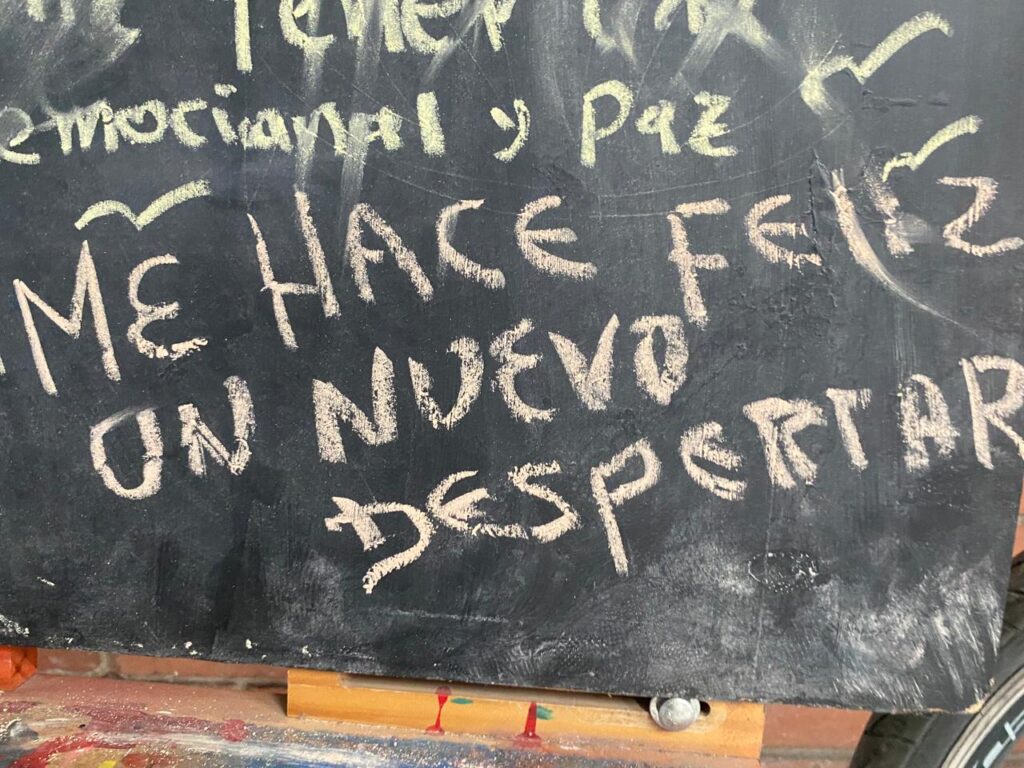 Tener
emocianal y Paz
ME HACE FELIZ
UN NUEVO
DESPERTAR